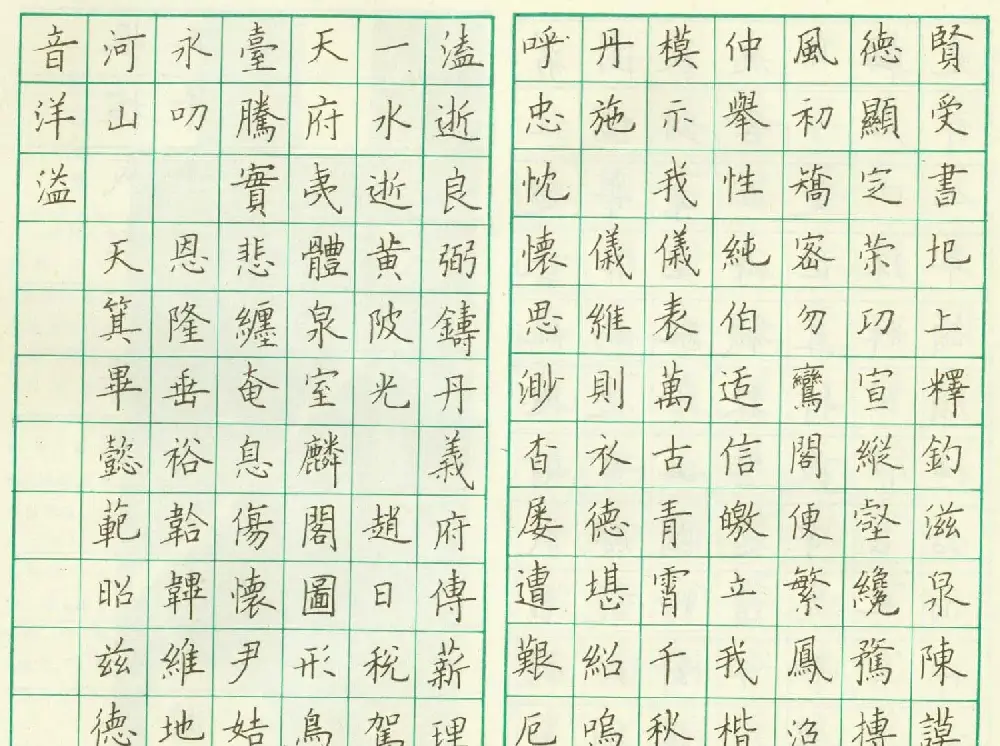 賢受書圯上釋釣滋泉陳謨
德顯定榮功宣縱壑纔騖摶
風初矯翮勿鸞閣便繁鳳沼
仲舉性純伯适信皦立我楷
模示我儀表萬古青霄千秋
丹施 儀維則衣德堪紹嗚
呼忠忱懷思渺杳屡遭艱厄
溘逝良弼鑄丹義府傳薪理
一水逝黄陂光 趙日稅駕
天府夷體泉室麟閣圖形鳥
臺騰實悲纏奄息傷懷尹姞
永叨 恩隆垂裕韐韠維地
河山 天箕畢懿範昭兹德
音洋溢